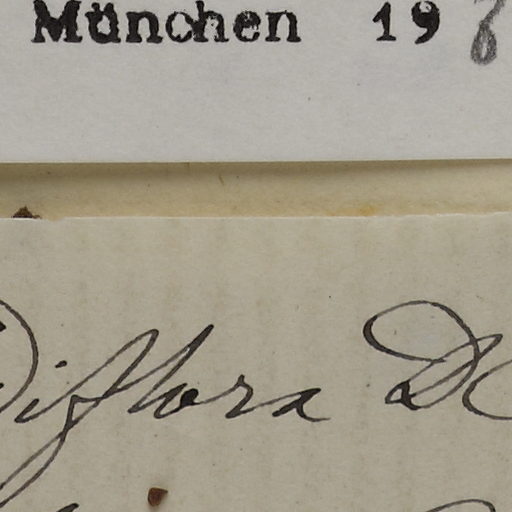 München 198
Diflora D